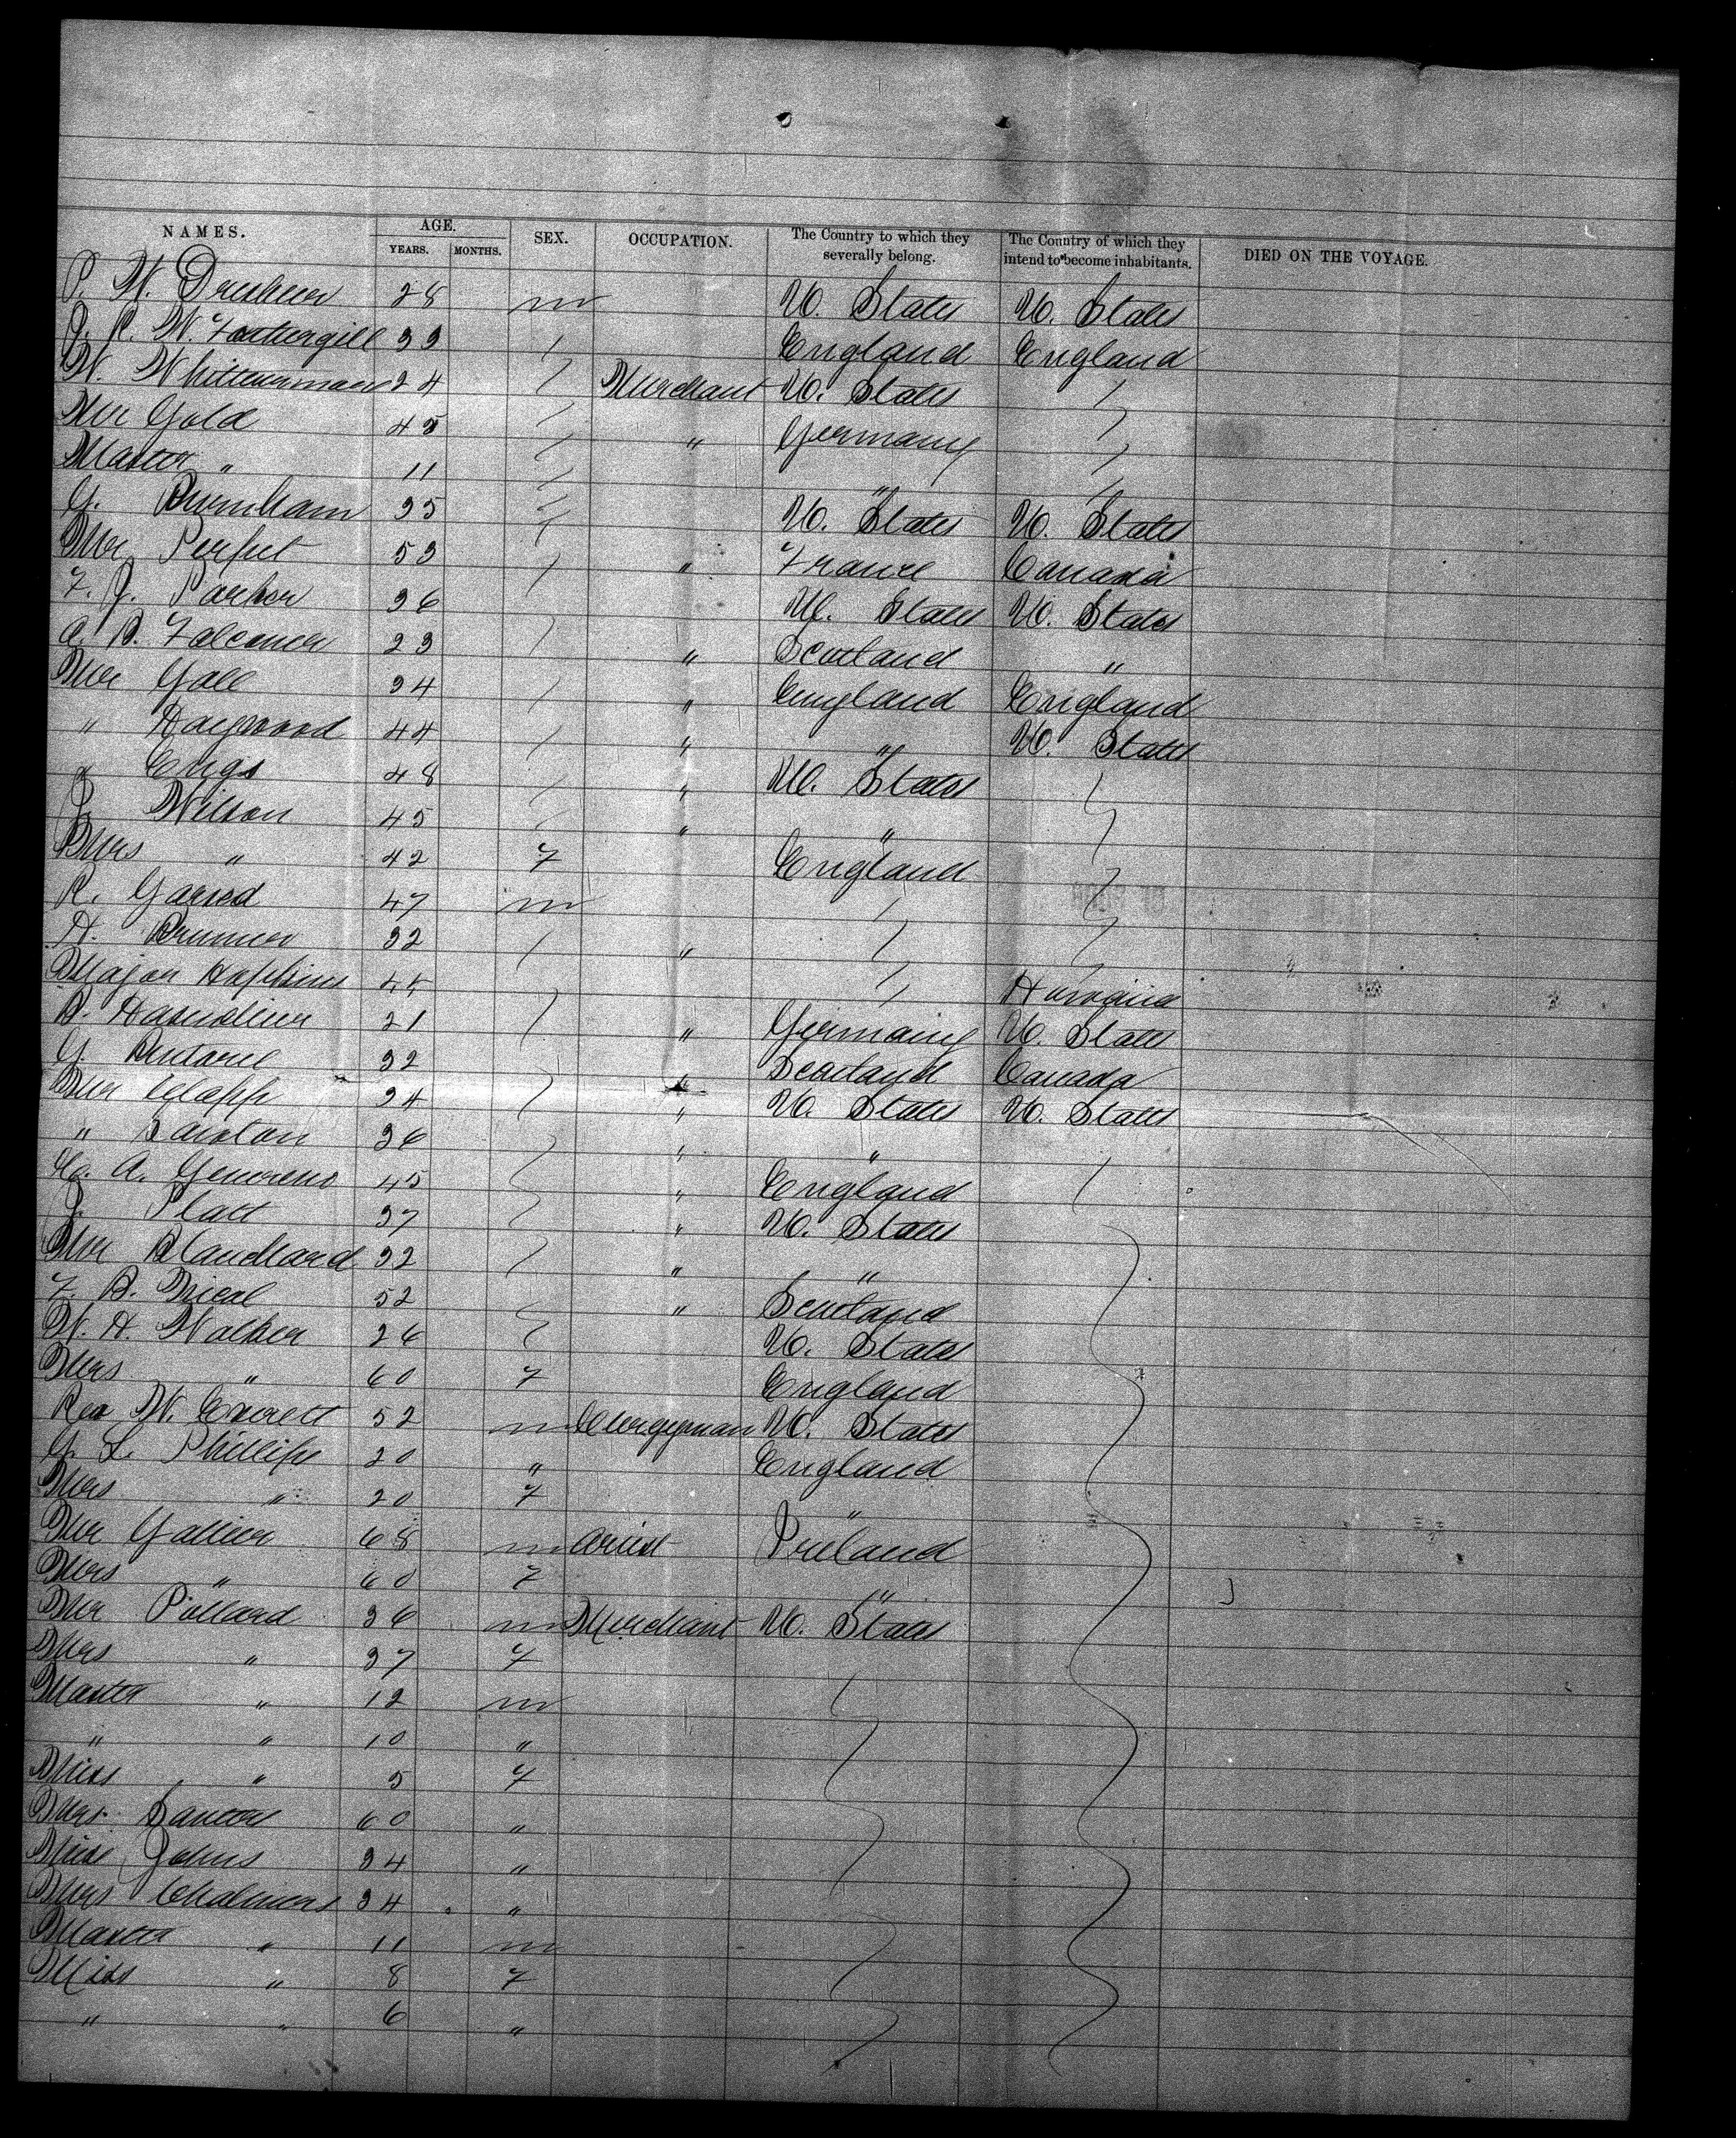 NAMES. AGE. SEX. OCCUPATION. The Country to which they severally belong. The Country of which they intend to become inhabitants. DIED ON THE VOYAGE.
YEARS. MONTHS.
P. W. 28 m U. States U. States
J. R. W. Fothergill 33 England England
W. Whitterman 24 Merchant U. States
Mr Gold 45 " Germany
Master " 11 "
G. Burnham 35 U. States U. States
Mr Perfut 53 " France Canada
F. J. Parker 36 U. States U. States
A. B. Falconer 23 " Scotland "
Mr Gall 34 " England England
" Haywood 44 " " U. States
" Engs 48 " U. States
J. Wilson 45 " "
Mrs " 42 F England
R. Garrod 47 m
H. Brunner 32 "
Major Hopkins 44
B. 21 " Germany U. States
G. 32 " Scotland Canada
Mr Clapp 34 " U. States U. States
" 36 " "
A. 45 " England
J. Platt 37 " U. States
Mr Blanchard 32 " "
F. B. 52 " Scotland
W. H. Walker 26 U. States
Mrs " 60 F England
Rev W. Everett 52 m Clergyman U. States
G. L. Phillips 20 " England
Mrs " 20 F "
Mr Gallier 68 m Artist Ireland
Mrs " 60 F "
Mr Pollard 36 m Merchant U. States
Mrs " 37 F
Master " 12 m
" " 10 "
Miss " 5 F
Mrs. 60 "
Miss Johns 34 "
Mrs Chalmers 34 "
Master " 11 m
Miss " 8 F
" " 6 "